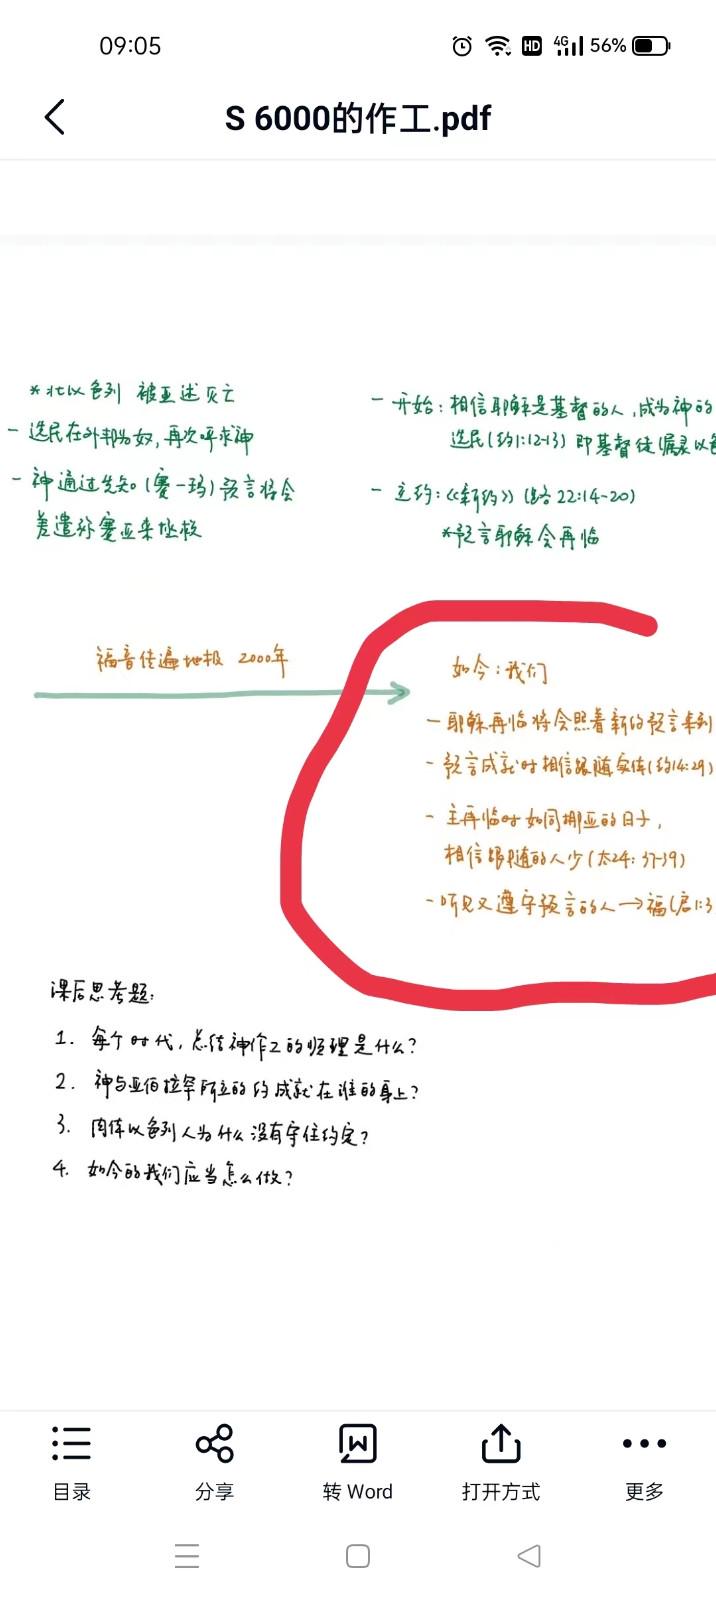 09:05
HD 4G 56%
S 6000的作工.pdf
*北以色列 被亚述灭亡
- 选民在外邦为奴,再次呼求神
- 神通过先知(赛-玛)预言将会
差遣弥赛亚来拯救
- 开始:相信耶稣是基督的人,成为神的
选民(约1:12-13) 即基督徒(属灵以色
- 立约:《新约》(路22:14-20)
*预言耶稣会再临
福音传遍地极 2000年
如今:我们
- 耶稣再临将会照着新的预言来到
- 预言成就时相信跟随实体(约14:29)
- 主再临时如同挪亚的日子,
相信跟随的人少(太24:37-39)
- 听见又遵守预言的人→福(启1:3
课后思考题:
1. 每个时代,总结神作工的顺理是什么?
2. 神与亚伯拉罕所立的约成就在谁的身上?
3. 肉体以色列人为什么没有守住约定?
4. 如今的我们应当怎么做?
目录
分享
转 Word
打开方式
更多